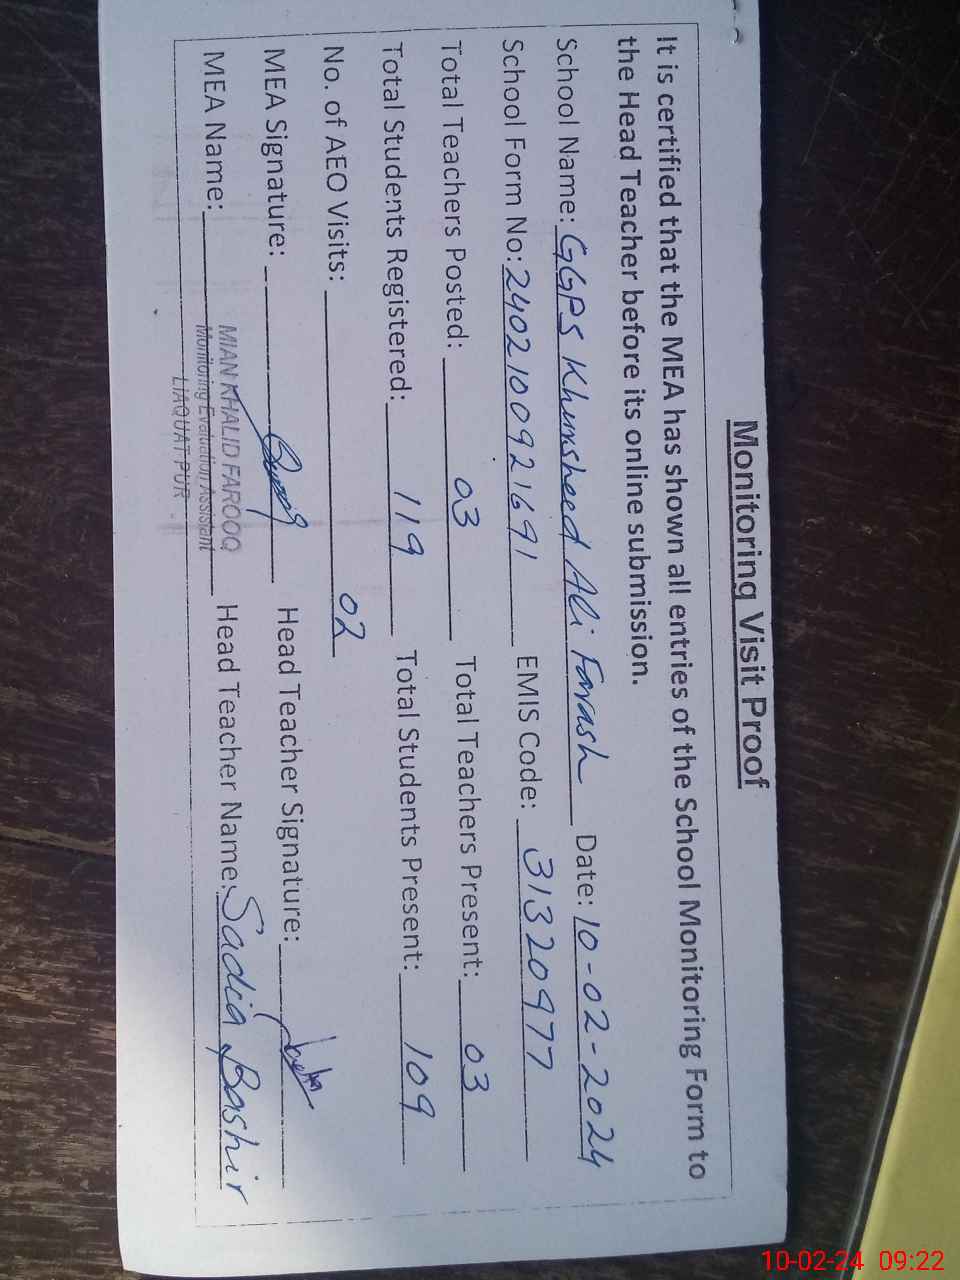 Monitoring Visit Proof
It is certified that the MEA has shown all entries of the School Monitoring Form to
the Head Teacher before its online submission.
School Name: GGPS Khursheed Ali Farash Date: 10-02-2024
School Form No: 2402100921691 EMIS Code: 31320977
Total Teachers Posted: 03 Total Teachers Present: 03
Total Students Registered: 119 Total Students Present: 109
No. of AEO Visits: 02
MEA Signature: Head Teacher Signature:
MEA Name: MIAN KHALID FAROOQ Head Teacher Name: Sadia Bashir
Monitoring Evaluation Assistant
LIAQUAT PUR
10-02-24 09:22